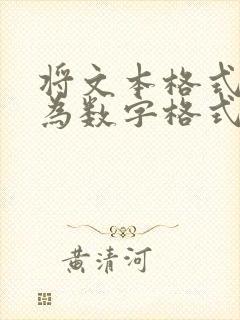 将文本格式
为数字格式
黄清河